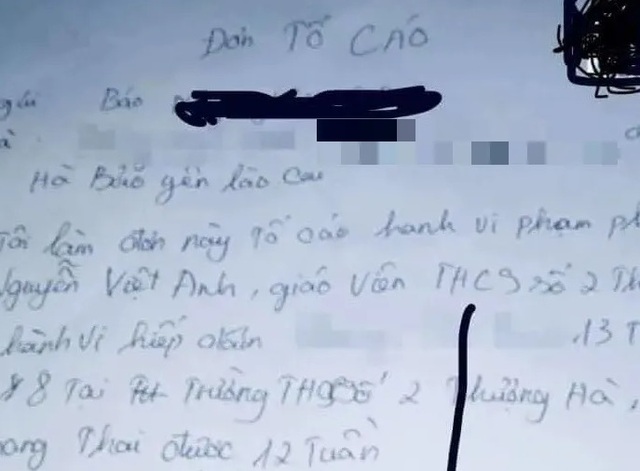 Đơn Tố Cáo
gửi Báo
Hà Bảo yên lào cai
Tôi làm đơn này Tố cáo hanh vi phạm ph
Nguyễn Việt Anh, giáo viên THCS số 2 Th
hành vi hiếp dâm 13 T
8 Tại Trường THCS số 2 Thượng Hà,
mang Thai được 12 Tuần